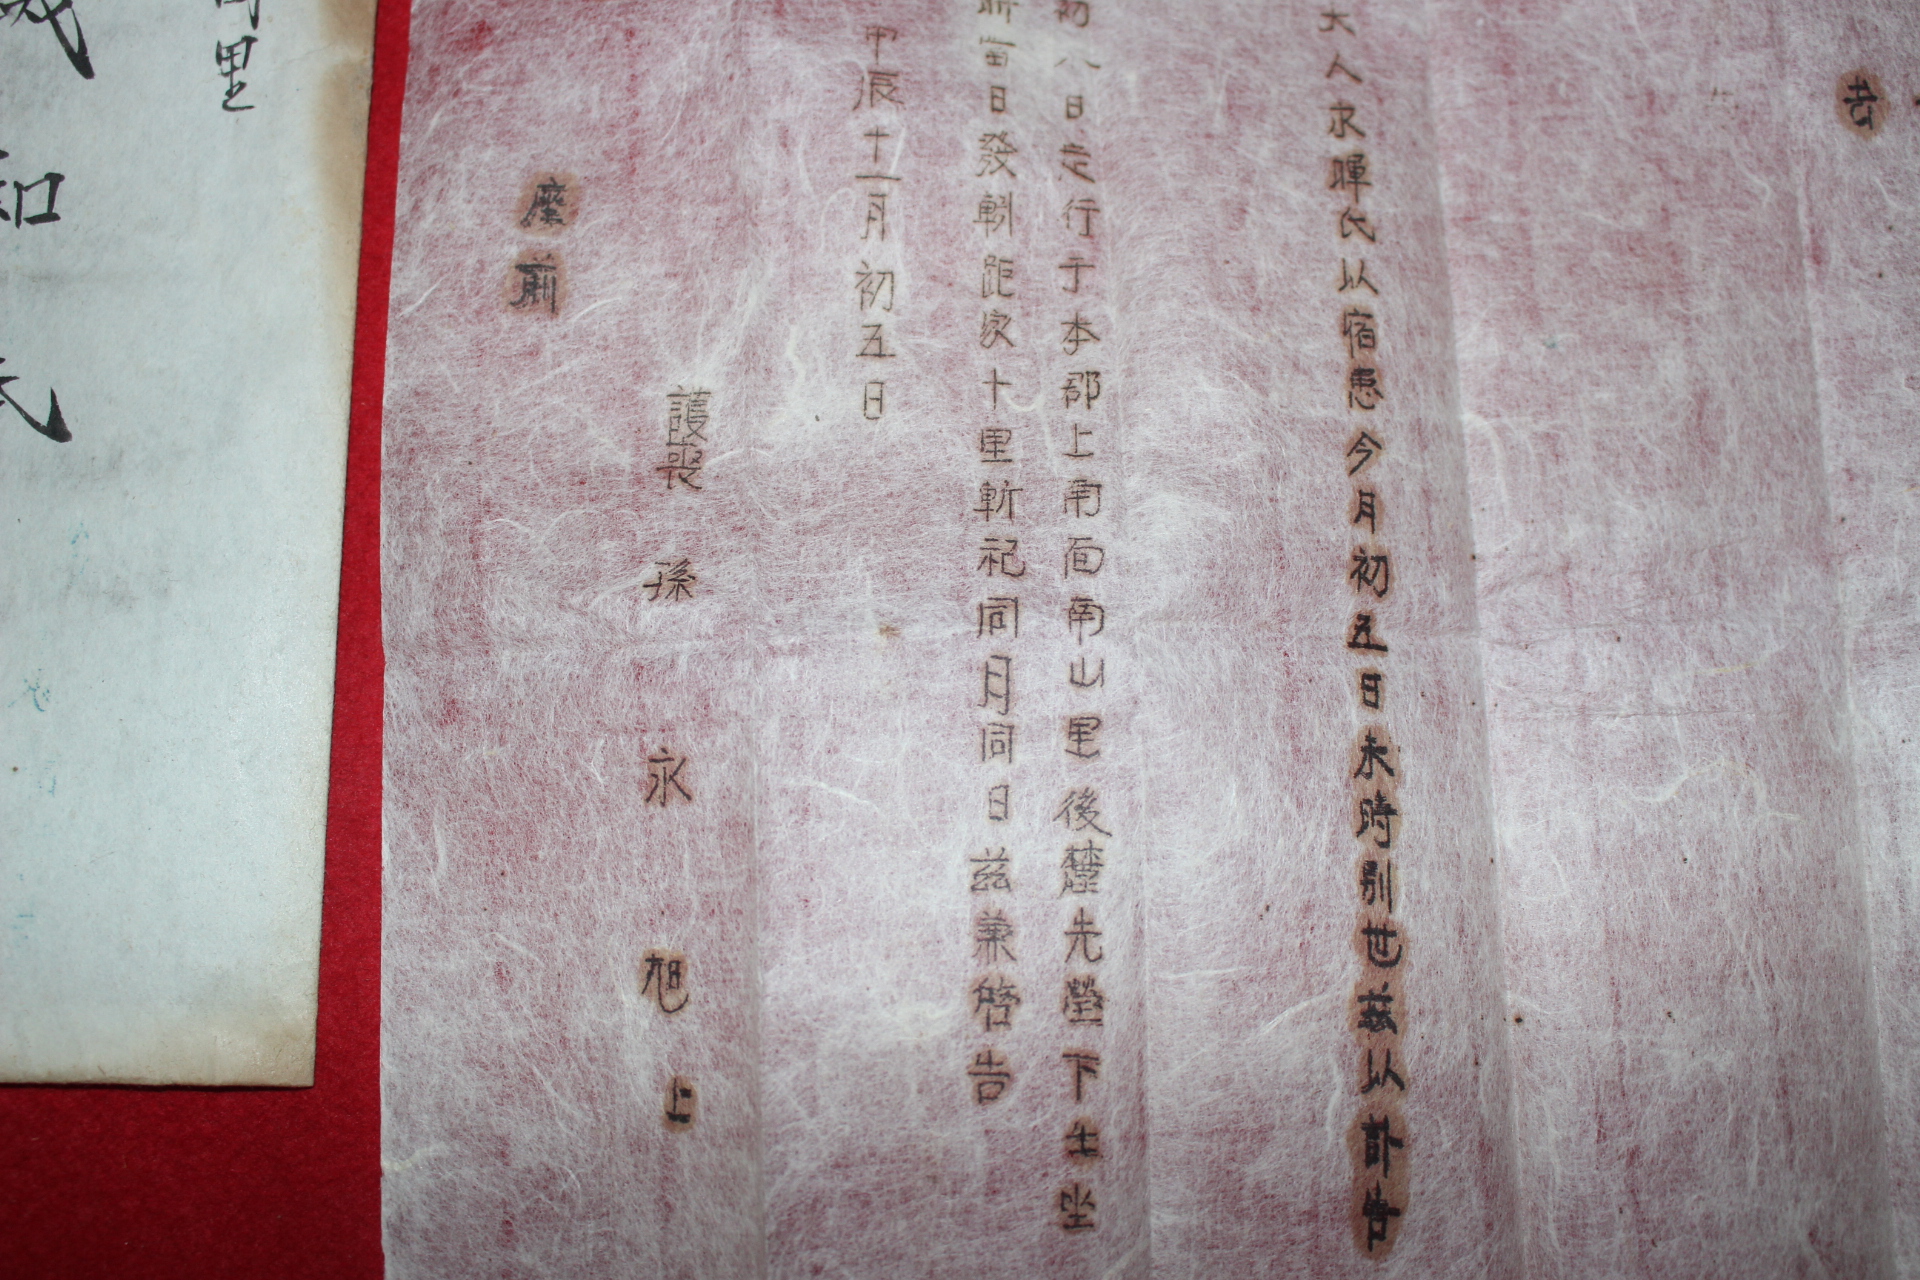 告
大人永暉氏以宿患今月初五日未時別世玆以訃告
初八日之行于本郡上南面南山里後麓先塋下士坐
當日發靷距家十里斬祀同月同日玆兼啓告
甲辰十一月初五日
護喪 孫 永 旭 上
座前
里
和
氏